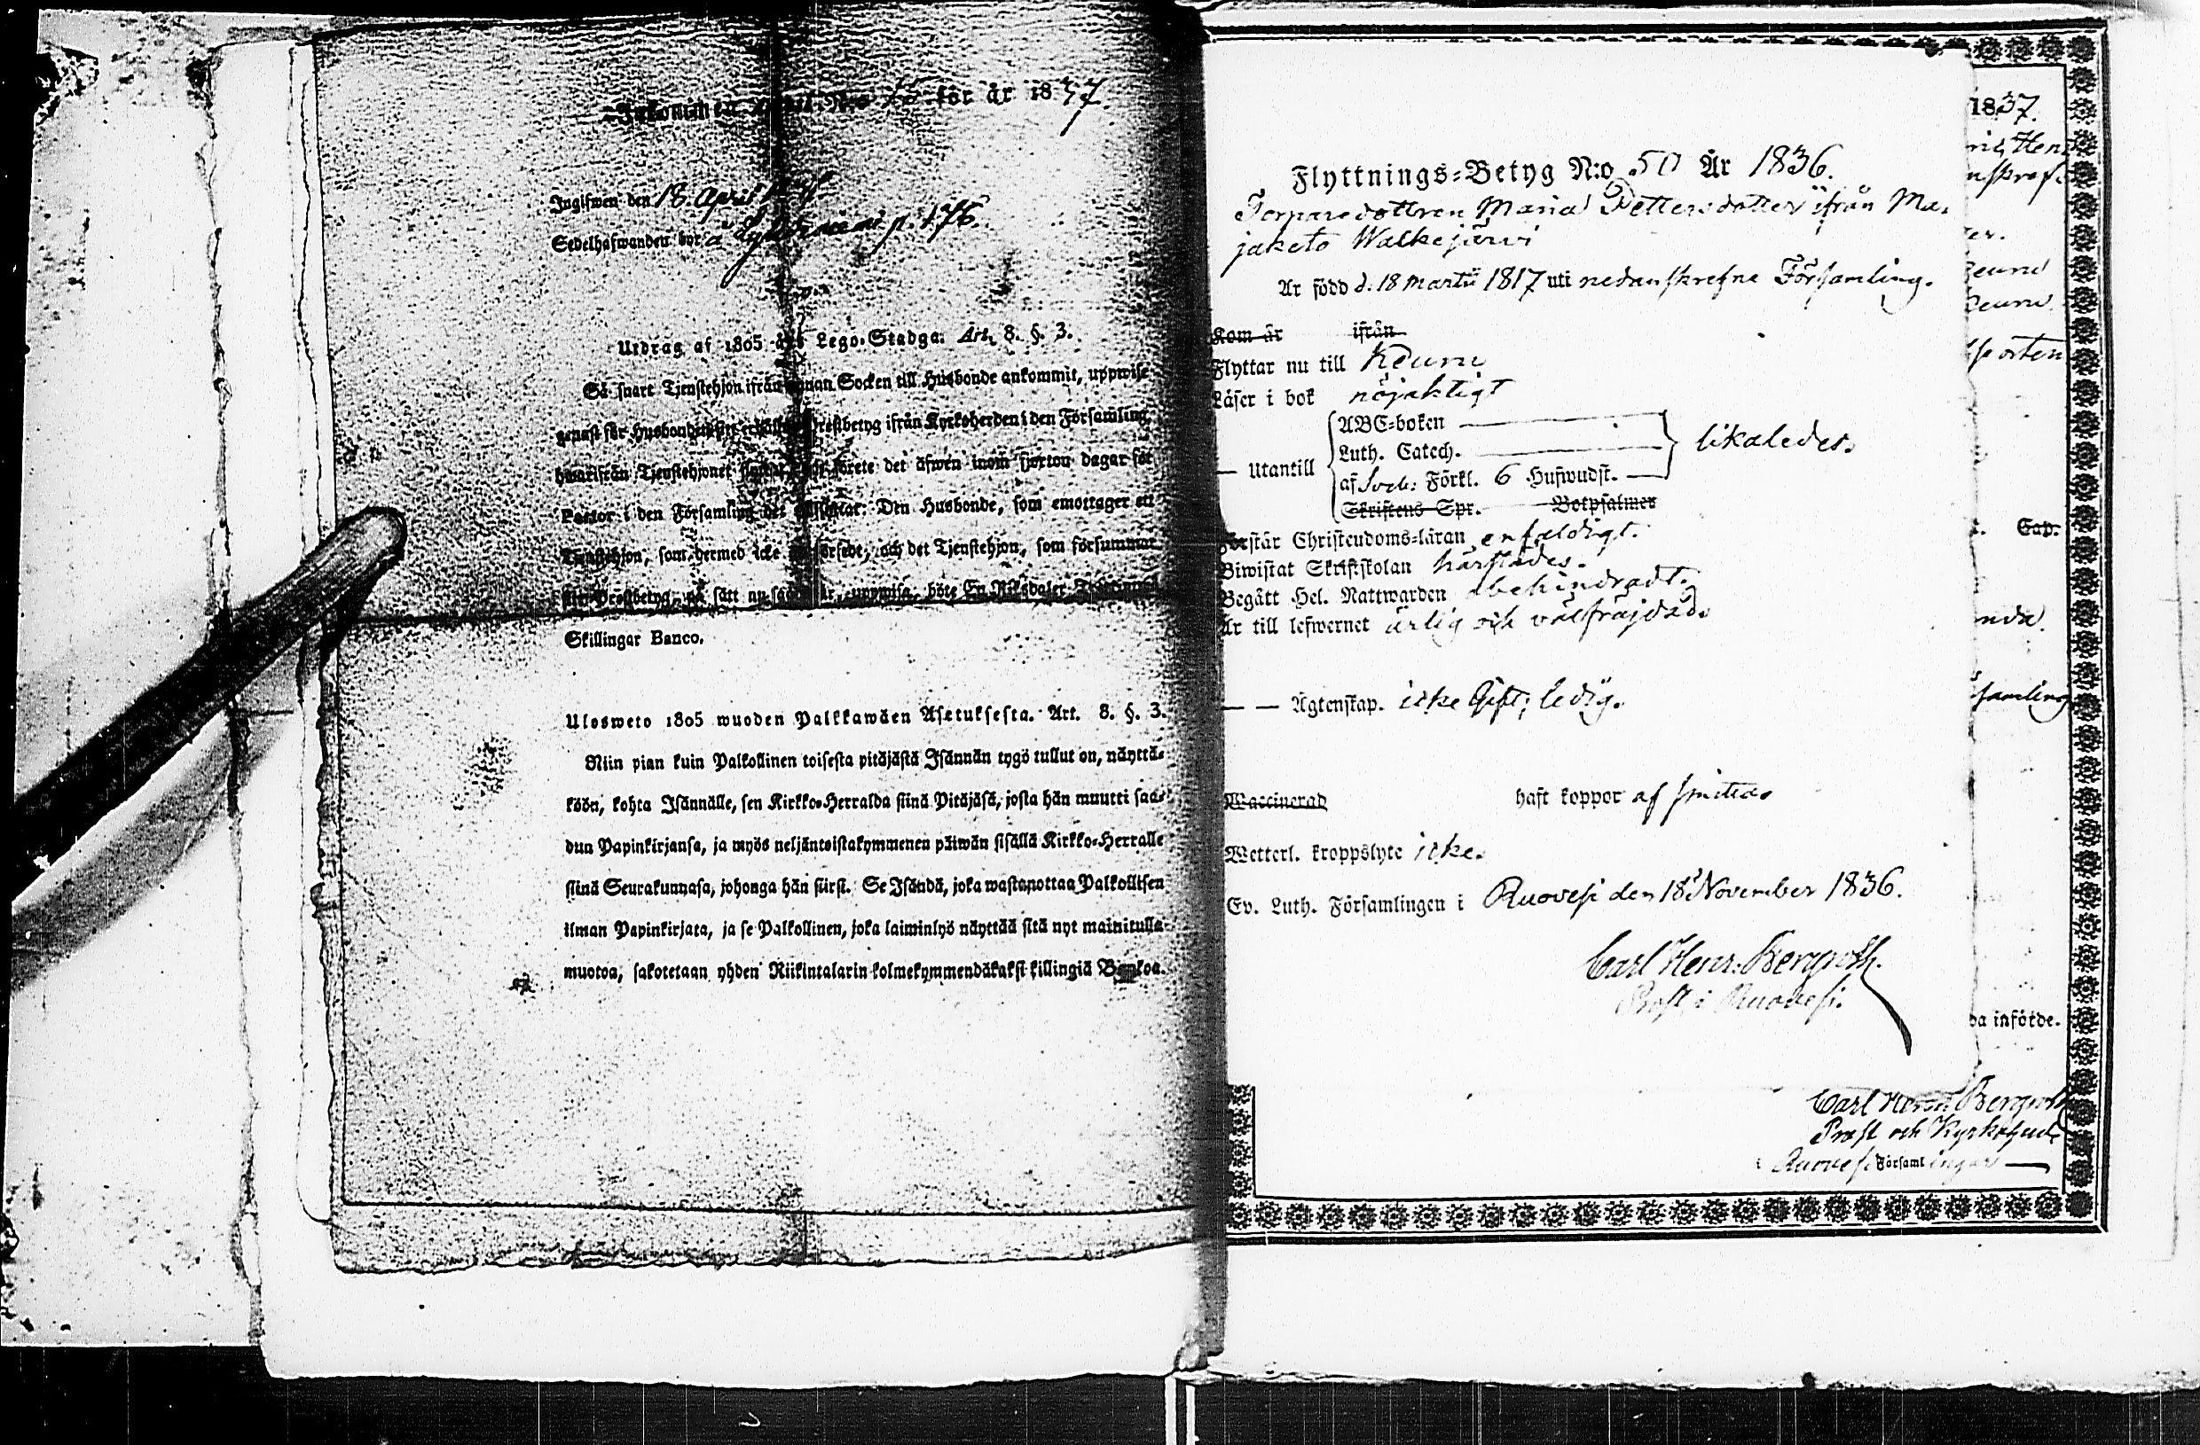 för år 1837.
Ingifwen den 18 April
Sedelhafwanden bor å p. 176.
Utdrag af 1805 års Lego-Stadga. Art. 8. §. 3.
Så snart Tjenstehjon ifrån annan Socken till Husbonde ankommit, uppwise
genast för Husbonden Prestbetyg ifrån Kyrkoherden i den Församling,
hwarifrån Tjenstehjonet förete det äfwen inom fjorton dagar för
Pastor i den Församling det Den Husbonde, som emottager ett
Tjenstehjon, som dermed icke är försedt, och det Tjenstehjon, som försummar
sitt Prestbetyg, på sätt nu sagdt är, uppwisa, böte En Riksdaler
Skillingar Banco.
Ulosweto 1805 wuoden Palkkawäen Asetuksesta. Art. 8. §. 3.
Niin pian kuin Palkollinen toisesta pitäjästä Isännän tygö tullut on, näyttä-
köön, kohta Isännälle, sen Kirkko-Herralda siinä Pitäjäsä, josta hän muutti saa-
dun Papinkirjansa, ja myös neljäntoistakymmenen päiwän sisällä Kirkko-Herralle
siinä Seurakunnasa, johonga hän siirst. Se Isändä, joka wastanottaa Palkollisen
ilman Papinkirjata, ja se Palkollinen, joka laiminlyö näyttää sitä nyt mainitulla
muotoa, sakotetaan yhden Riikintalarin kolmekymmendäkaksi killingiä Bankoa.
Flyttnings-Betyg N:o 50 År 1836.
Torparedottren Maria Pettersdotter ifrån Ma-
jaketo Walkejärvi
Är född d. 18 Martii 1817 uti nedanskrefne Församling.
Kom år ifrån
Flyttar nu till Keuru
Läser i bok nöjaktigt
ABC-boken
Luth. Catech.
— utantill likaledes.
af Sveb: Förkl. 6 Hufwudst.
Skriftens Spr. Botpsalmer
Förstår Christendoms-läran enfaldigt.
Biwistat Skriftskolan härstädes.
Begått Hel. Nattwarden obehindradt.
Är till lefwernet ärlig och välfräjdad.
— — Ägtenskap. icke Gift; ledig.
Waccinerad haft koppor af smitta.
Wetterl. kroppslyte icke.
Ev. Luth. Församlingen i Ruovesi den 18 November 1836.
Carl Henr: Bergroth.
Prost i Ruovesi.
1837.
Keuru
Keuru
sporten
Cap.
samling
da införde.
Carl Henr: Bergroth
Prost och Kyrkoherde
i Ruovesi Församlingar